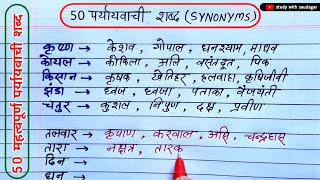 study with saudagar
50 पर्यायवाची शब्द (SYNONYMS)
50 महत्वपूर्ण पर्यायवाची शब्द
कृष्ण → केशव, गोपाल, घनश्याम, माधव
कोयल → कोकिला, अलि, वसंतदूत, पिक
किसान → कृषक, खेतिहर, हलवाहा, कृषिजीवी
झंडा → ध्वज, ध्वजा, पताका, वैजयंती
चतुर → कुशल, निपुण, दक्ष, प्रवीण
तलवार → कृपाण, करवाल, असि, चन्द्रहास
तारा → नक्षत्र, तारक
दिन →
धन →